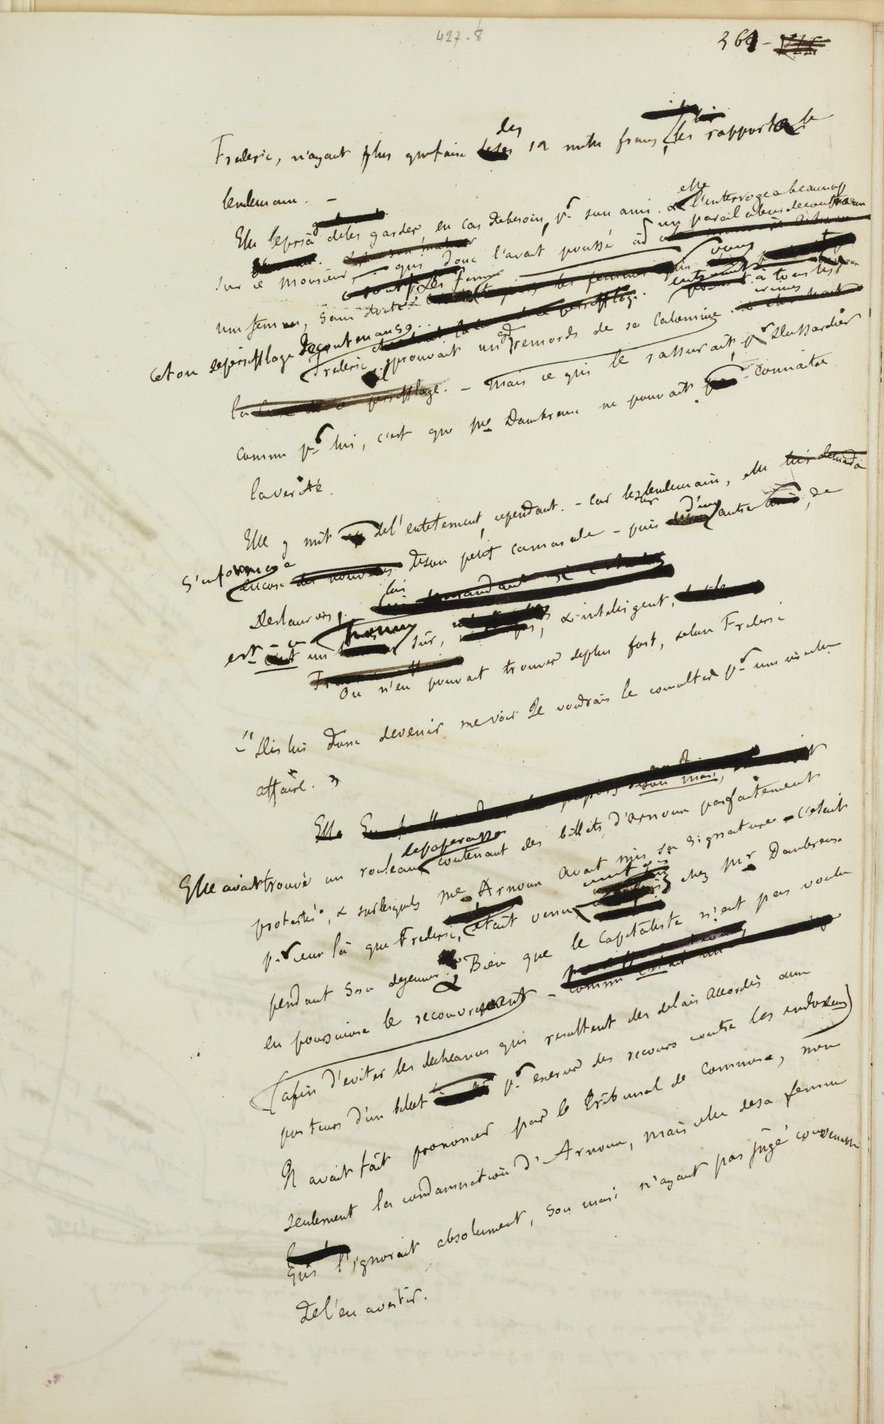 427.8
361 -
des
Frederic, n'ayant plus que faire 12 mille francs, les rapporta le
lendemain. -
elle
Elle le pria de les garder en cas de besoin, pr son ami. & l'interrogea beaucoup
sur ce monsieur - qui donc l'avait poussé à un pareil abus de confiance
une femme, sans doute! les femmes vous à tous les
crimes
Ce ton de persifflage decontenança
Frederic éprouvait un gd remords de sa calomnie.
- mais ce qui le rassurait, pr Dussardier
comme pr lui, c'est que Me Dambreuse ne pouvait connaitre
la verité.
Elle y mit de l'entetement, cependant. - Car le surlendemain, elle
s'informa
encore de son petit camarade - puis d'un autre, de
Deslauriers.
est-ce un homme sûr, & intelligent,
On n'en pouvait trouver de plus fort, selon Frederic
- "Dis lui donc de venir me voir Je voudrais le consulter pr une
affaire. "
Elle
de paperasses
Elle avait trouvé un rouleau contenant des billets d'Arnoux parfaitement
protestés, & sur lesquels Me Arnoux avait mis sa signature - c'était
pr ceux là que Frederic, était venu chez Mr Dambreuse
pendant son dejeuner. & Bien que le capitaliste n'eut pas voulu
en poursuivre le recouvrement -
(afin d'eviter les decheances qui resultent des delais accordés aux
porteurs d'un billet pr exercer des recours contre les endosseurs)
Il avait fait prononcer par le Tribunal de Commerce, non
seulement la condamnation d'Arnoux, mais celle de sa femme
qui l'ignorait absolument, son mari n'ayant pas jugé convenable
de l'en avertir.